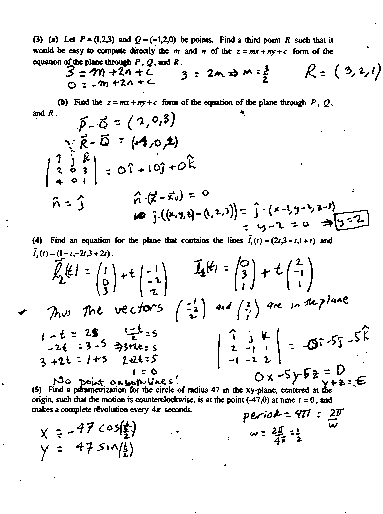 (3) (a) Let P = (1,2,3) and Q = (-1,2,0) be points. Find a third point R such that it
would be easy to compute directly the m and n of the z = mx + ny + c form of the
equation of the plane through P, Q, and R.
3 = m + 2n + c
0 = -m + 2n + c
3 = 2m ⇒ m = 3/2
R = (3,2,1)
(b) Find the z = mx + ny + c form of the equation of the plane through P, Q,
and R.
P - Q = (2,0,3)
R - Q =
î ĵ k̂
2 0 3
4 0 1
= 0î + 10ĵ + 0k̂
n̂ = ĵ
n̂·(x̄ - x̄₀) = 0
ĵ·((x,y,z) - (1,2,3)) = ĵ·(x-1, y-2, z-3)
= y - 2 = 0 ⇒ y = 2
(4) Find an equation for the plane that contains the lines l₁(t) = (2t,3-t,1+t) and
l₂(t) = (1-t,-2t,3+2t).
l₂(t) = (1 0 3) + t(-1 -2 2)
l₁(t) = (0 3 1) + t(2 -1 1)
Thus the vectors (-1 -2 2) and (2 -1 1) are in the plane
1 - t = 2s
-2t = 3 - s
3 + 2t = 1 + s
2+2t = s
No point on both lines!
î ĵ k̂
2 -1 1
-1 -2 2
-5ĵ - 5k̂
0x - 5y - 5z = D
y + z = E
(5) Find a parametrization for the circle of radius 47 in the xy-plane, centered at the
origin, such that the motion is counterclockwise, is at the point (-47,0) at time t = 0, and
makes a complete revolution every 4π seconds.
period = 4π = 2π/w
w = 2π/4π = 1/2
x = -47 cos(t/2)
y = 47 sin(t/2)